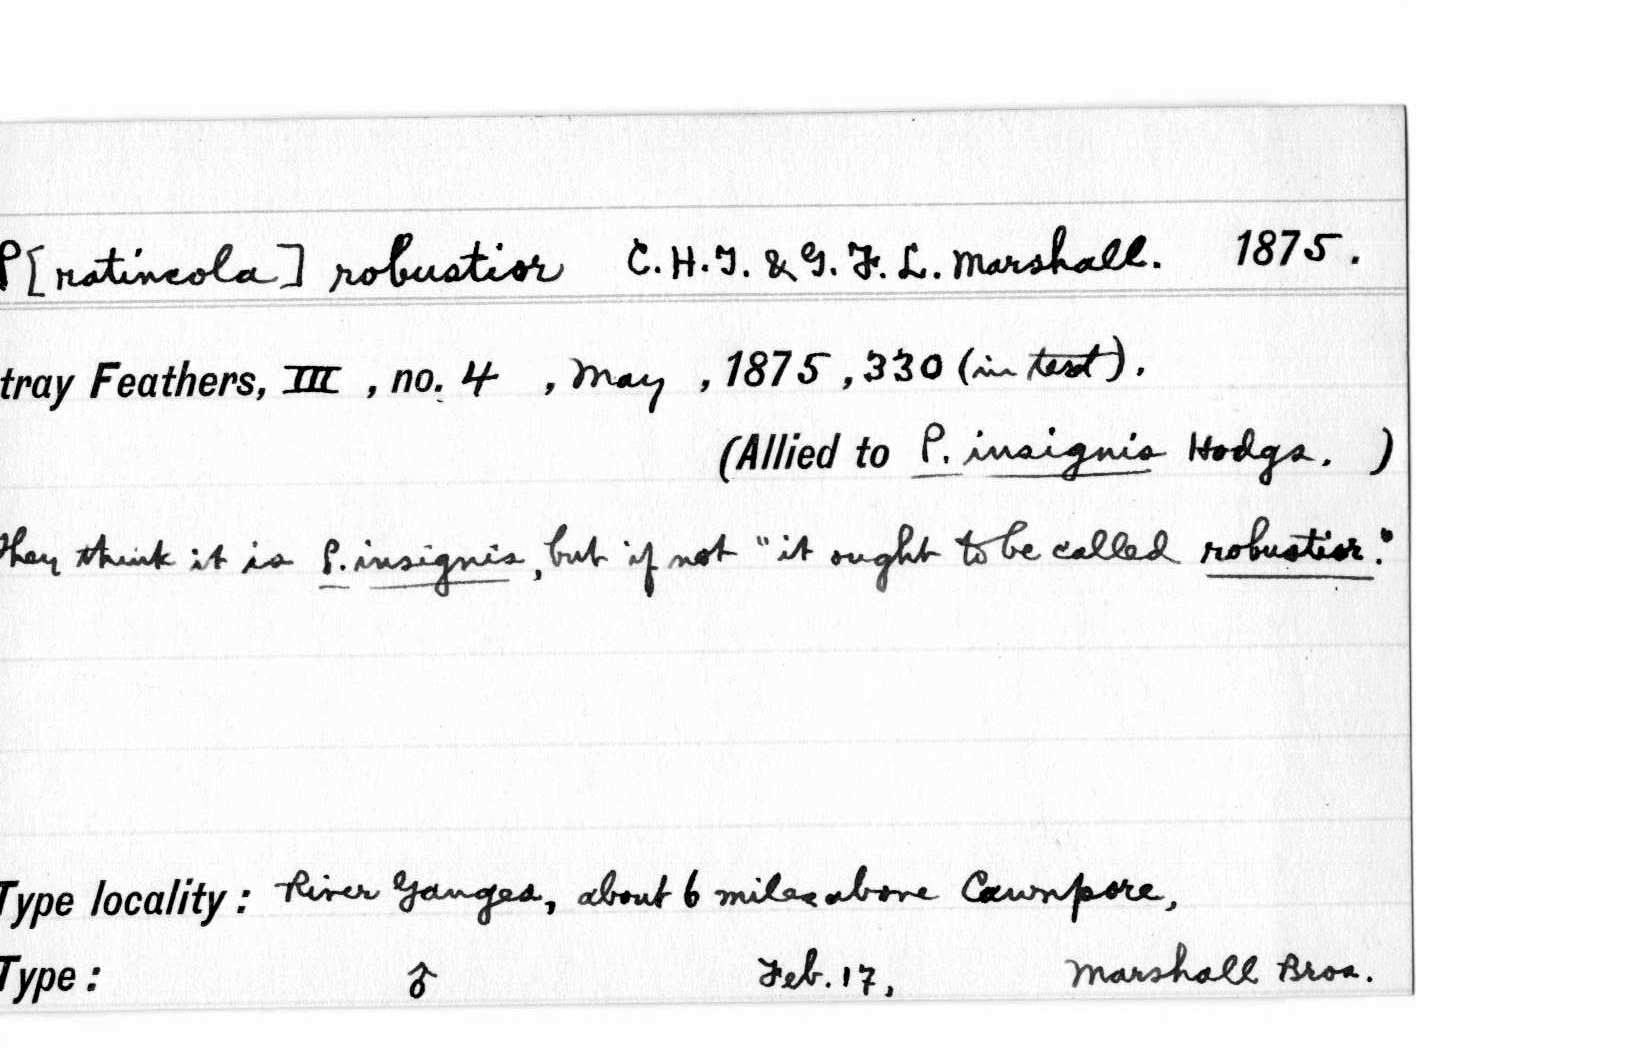 P[ratincola] robustior C. H. T. & G. F. L. Marshall. 1875.
tray Feathers, III, no. 4, May, 1875, 330 (in text).
(Allied to P. insignis Hodgs. )
They think it is P. insignis, but if not "it ought to be called robustior."
Type locality: River Ganges, about 6 miles above Cawnpore,
Type: ♂ Feb. 17, Marshall Bros.